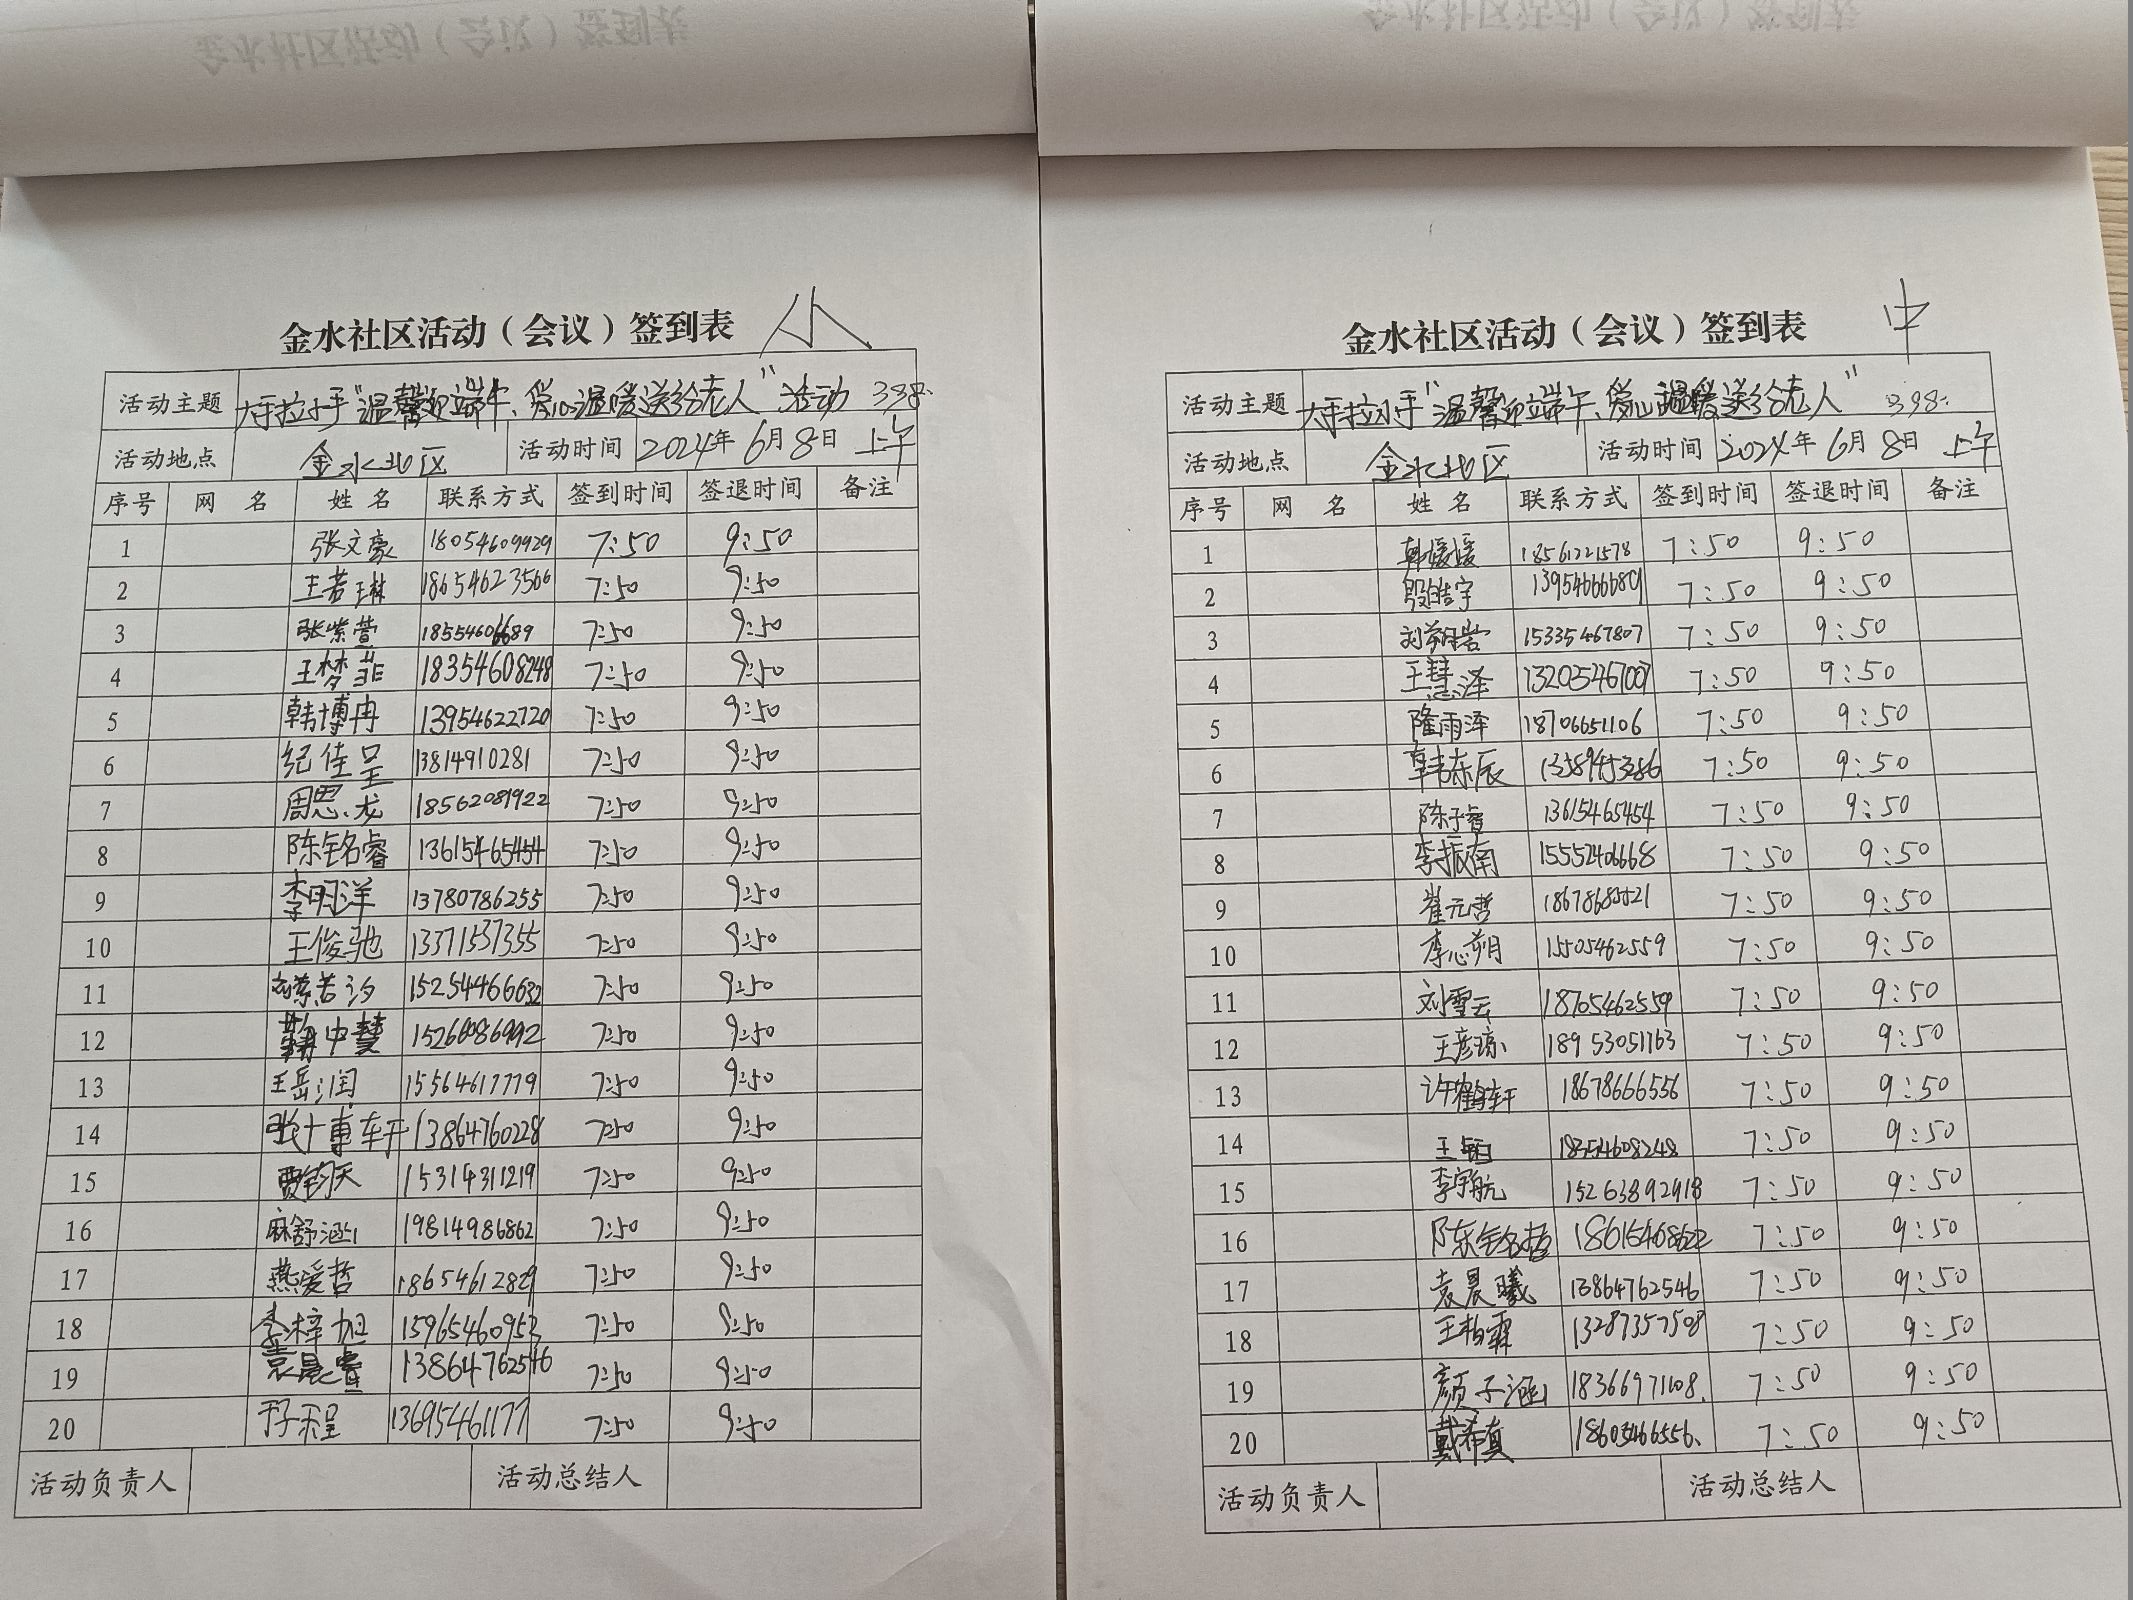 金水社区活动（会议）签到表 小
活动主题 大手拉小手"温馨迎端午、爱心温暖送给老人"活动 338.
活动地点 金水北区 活动时间 2024年6月8日 上午
序号 网 名 姓 名 联系方式 签到时间 签退时间 备注
1 张文豪 18054609929 7:50 9:50
2 王若琳 18654623566 7:50 9:50
3 张紫萱 18554606689 7:50 9:50
4 王梦菲 18354608248 7:50 9:50
5 韩博冉 13954622720 7:50 9:50
6 纪佳呈 13814910281 7:50 9:50
7 周思龙 18562081922 7:50 9:50
8 陈铭睿 13615465454 7:50 9:50
9 李明洋 13780786255 7:50 9:50
10 王俊驰 13371537355 7:50 9:50
11 若汐 15254466632 7:50 9:50
12 中慧 7:50 9:50
13 王岳润 15564617779 7:50 9:50
14 张博轩 13864760228 7:50 9:50
15 贾钧天 15314311219 7:50 9:50
16 麻舒涵 19814986862 7:50 9:50
17 燕爱哲 18654612829 7:50 9:50
18 李梓旭 15965460953 7:50 9:50
19 袁晨睿 13864762546 7:50 9:50
20 于子程 13695461177 7:50 9:50
活动负责人 活动总结人
金水社区活动（会议）签到表 中
活动主题 大手拉小手"温馨迎端午、爱心温暖送给老人" 398.
活动地点 金水北区 活动时间 2024年6月8日 上午
序号 网 名 姓 名 联系方式 签到时间 签退时间 备注
1 韩媛媛 18561221578 7:50 9:50
2 殷皓宇 13954666689 7:50 9:50
3 刘朔岩 15335467807 7:50 9:50
4 王慧泽 7:50 9:50
5 隆雨泽 18706651106 7:50 9:50
6 韩东辰 13589453286 7:50 9:50
7 陈子睿 13615465454 7:50 9:50
8 李振南 15552406668 7:50 9:50
9 崔元哲 7:50 9:50
10 李心朔 15505462559 7:50 9:50
11 刘雪云 18705462559 7:50 9:50
12 王彦琼 18953051763 7:50 9:50
13 许鹤轩 18678666556 7:50 9:50
14 王 18354608248 7:50 9:50
15 李宇航 15263892918 7:50 9:50
16 陈铭哲 18615468622 7:50 9:50
17 袁晨曦 13864762546 7:50 9:50
18 王柏霖 13287357508 7:50 9:50
19 颜子涵 18366971108. 7:50 9:50
20 戴希真 18605466556. 7:50 9:50
活动负责人 活动总结人